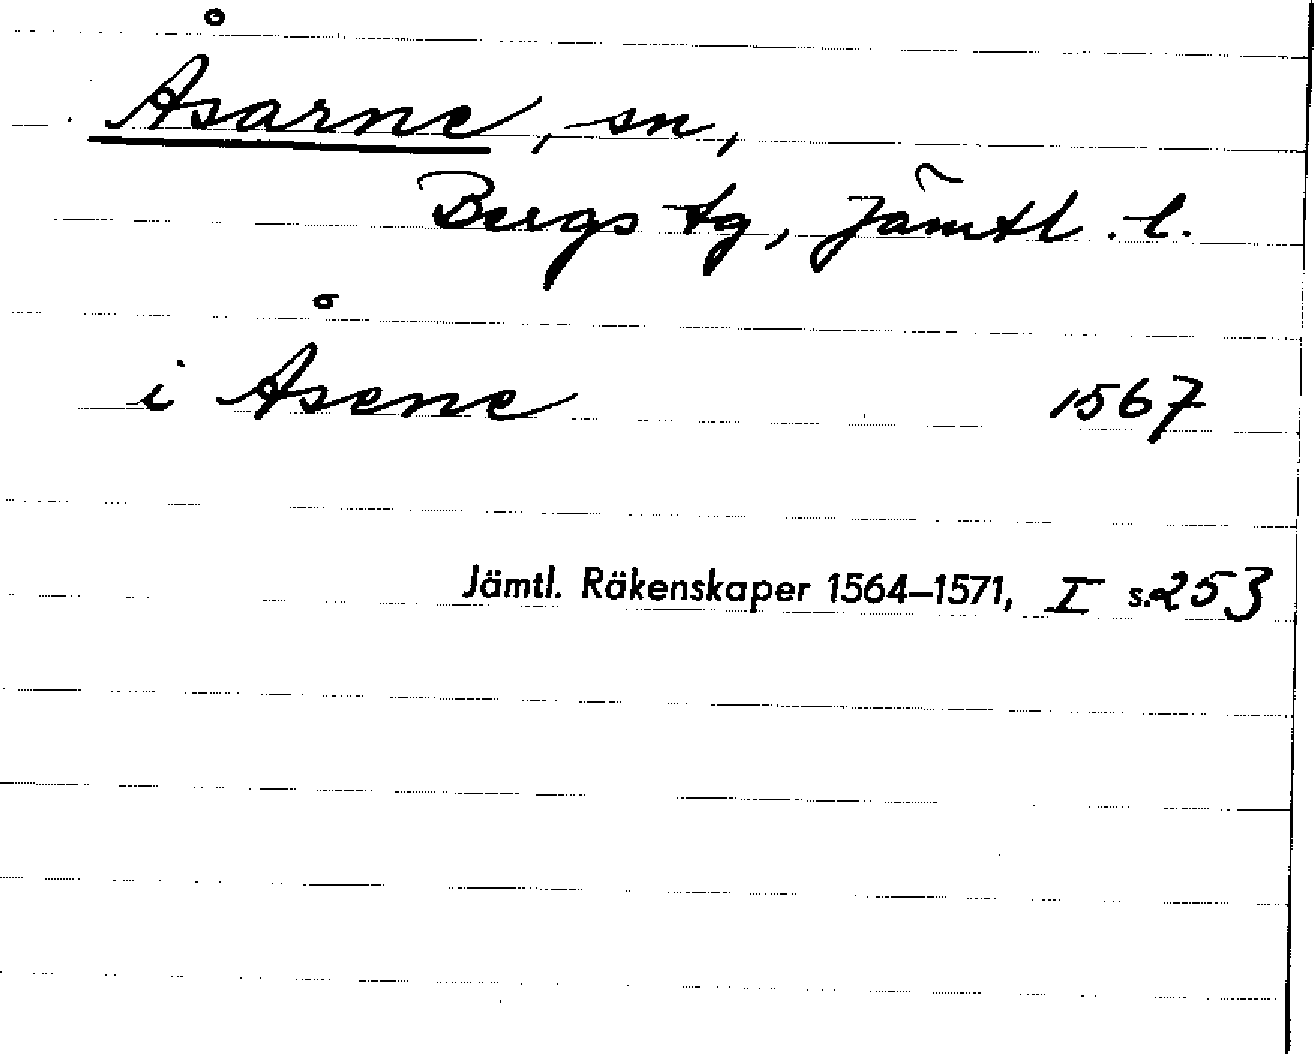 Åsarne, sn,
Bergs tg, Jämtl. l.
i Åsene 1567
Jämtl. Räkenskaper 1564–1571, I s. 253